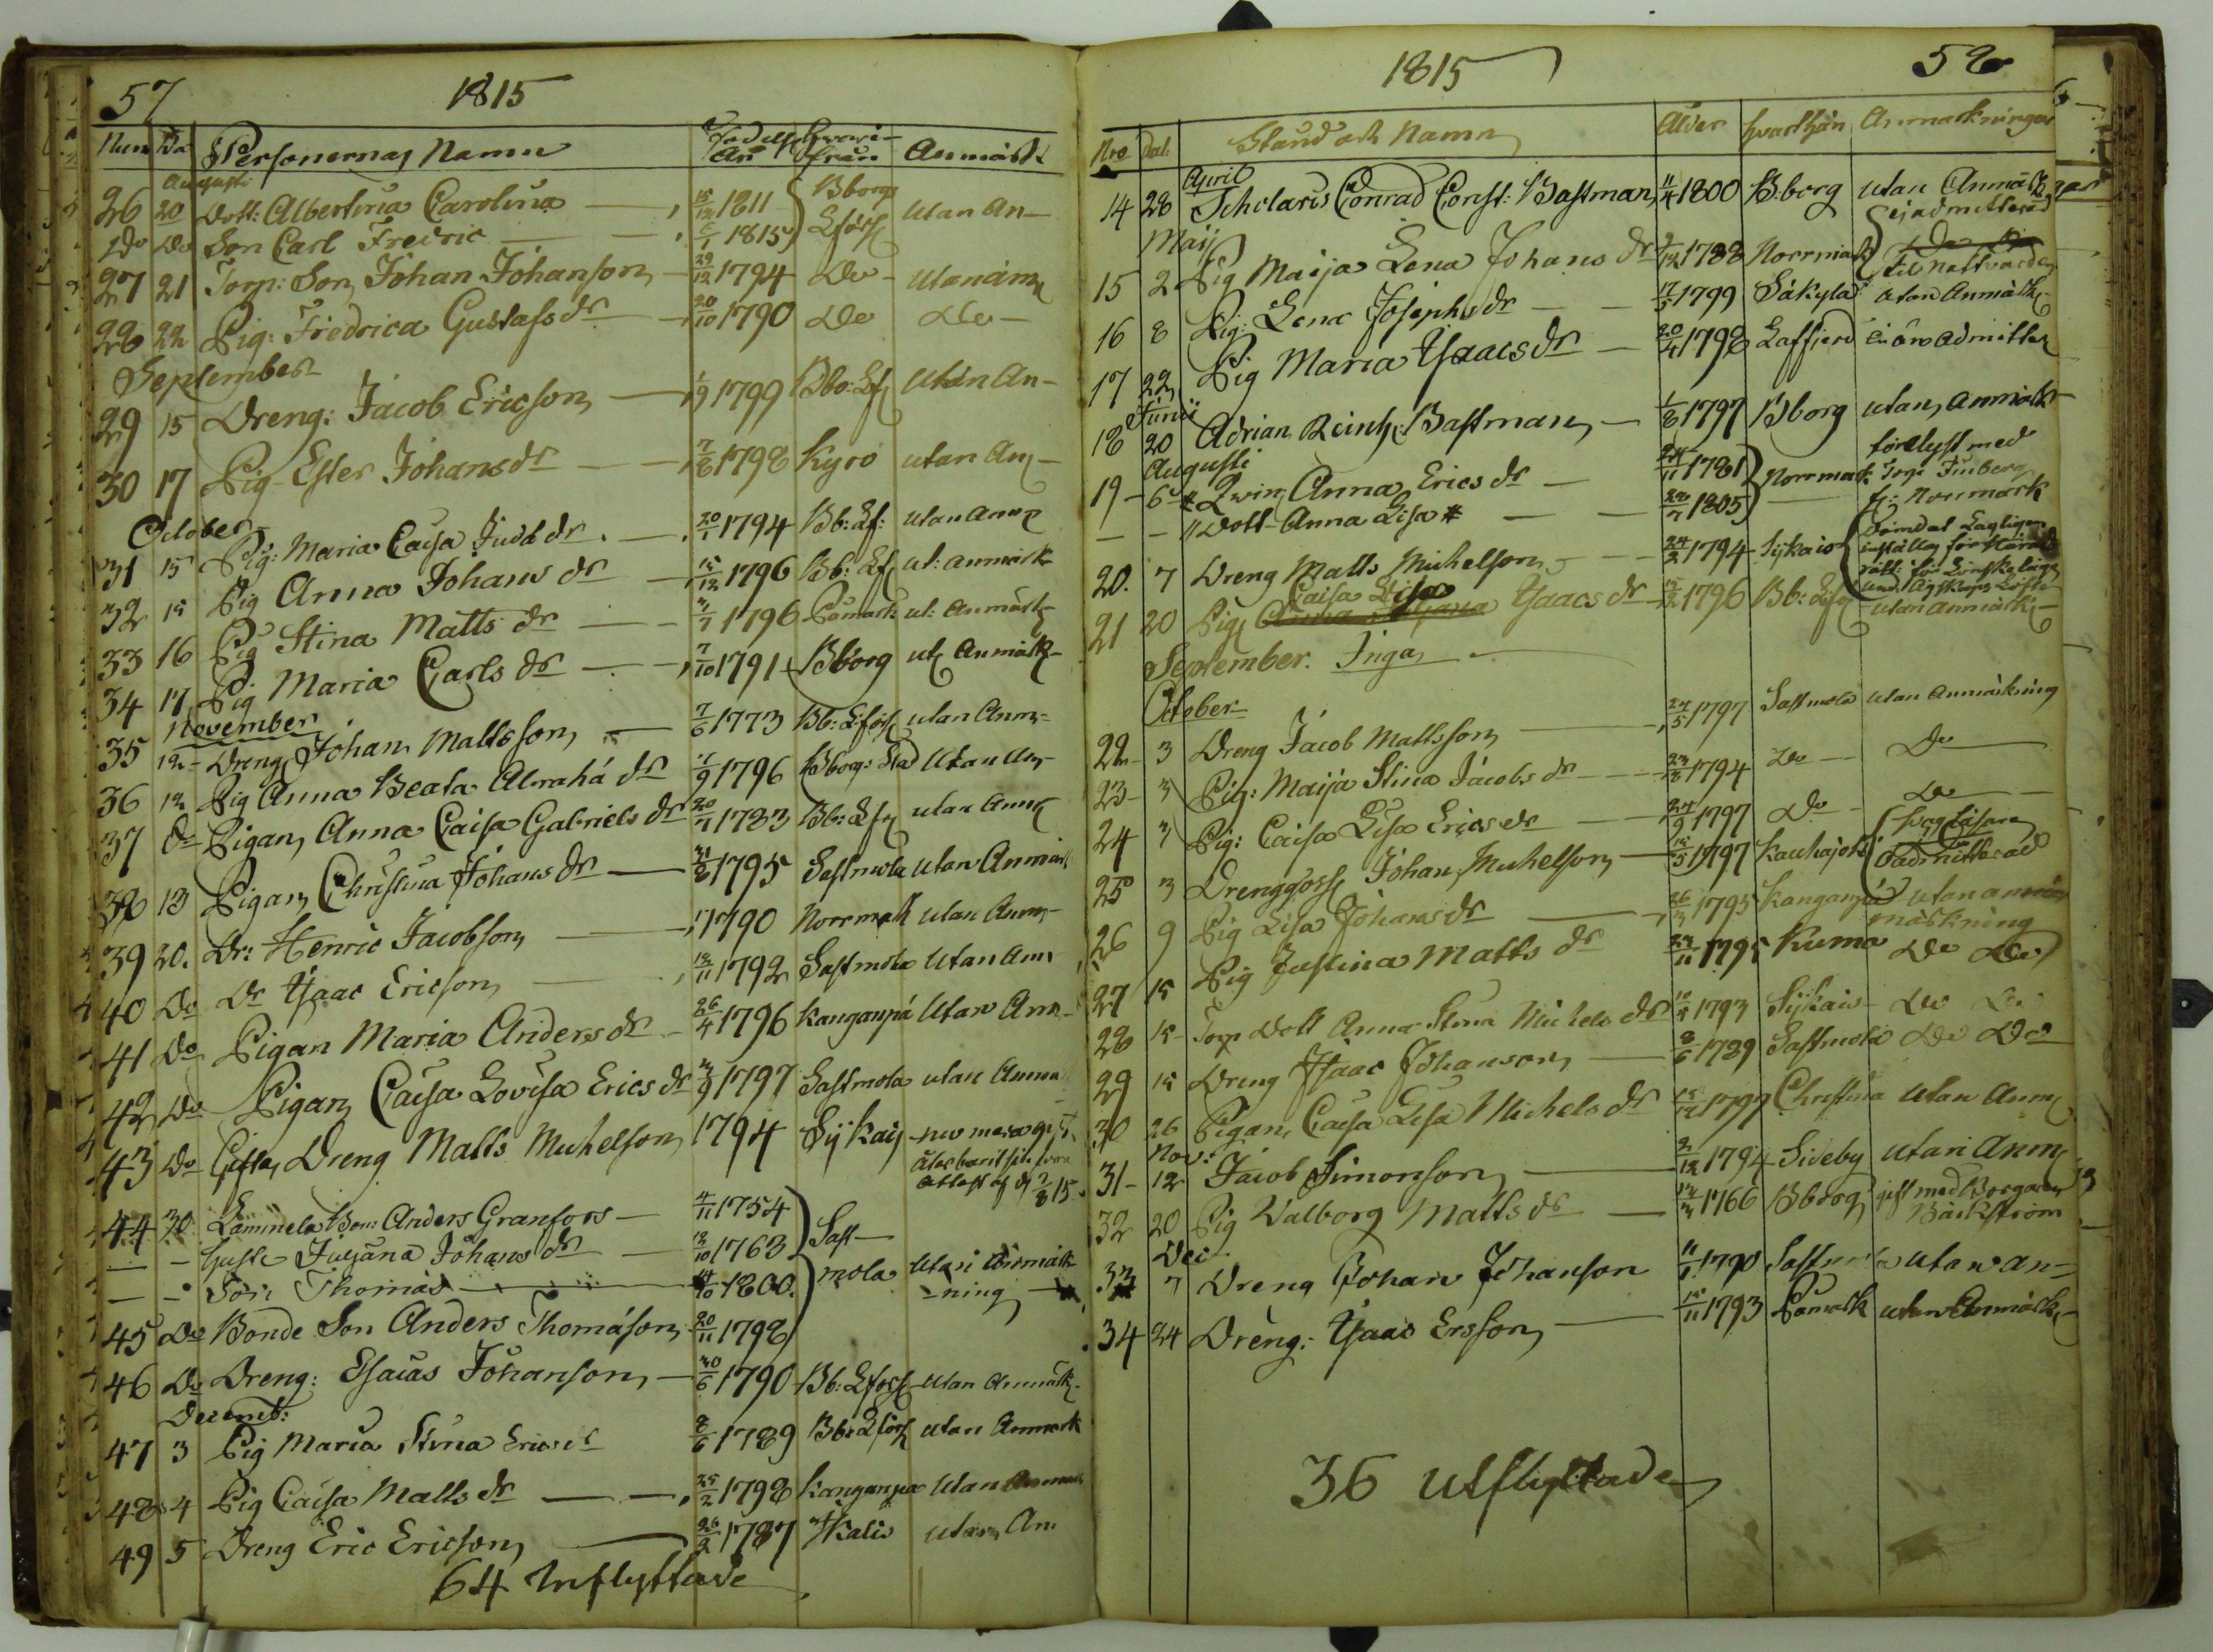 57 1815
Num Da Personernas Namn Födelse År hvari- från Anmärk
Augusti
26 20 Dott: Albertina Carolina 15/12 1811 Bborgs Utan An-
Do Do Son Carl Fredric 6/1 1815 Lförs
27 21 Torp: Son Johan Johanson 29/12 1794 Do Utan Anm
28 22 Pig: Fredrica Gustafs dr 20/10 1790 Do Do
September
29 15 Dreng: Jacob Ericson 1/9 1799 Bbo: Lf Utan An-
30 17 Pig Ester Johans dr 7/8 1798 Kyro utan An-
October
31 15 Pig: Maria Caisa Juda dr 20/1 1794 Bb: Lf: utan Anm
32 15 Pig Anna Johans dr 15/12 1796 Bb: Lf ut: anmärk
33 16 Pig Stina Matts dr 3/7 1796 Påmark ut: Anmärk
34 17 Pig Maria Carls dr 7/10 1791 Bborg ut Anmärk
November
35 12 Dreng Johan Mattsson 7/6 1773 Bb: Lförs utan Anm
36 12 Pig Anna Beata Abrahá dr 1/9 1796 Bborgs Stad Utan An-
37 Do Pigan Anna Caisa Gabriels dr 20/7 1783 Bb: Lf utan Anm
38 13 Pigan Christina Johans dr 21/8 1795 Sastmola utan Anmärk
39 20. Dr: Henric Jacobson 1790 Norrmark utan Anm
40 Do Dr Isaac Ericson 12/11 1792 Sastmola Utan Anm
41 Do Pigan Maria Anders dr 26/4 1796 Kanganpä Utan Anm
42 Do Pigan Caisa Lovisa Erics dr 3/9 1797 Sastmola utan Anm
43 Do Gifta Dreng Matts Michelson 1794 Sijkais
attest af d 7/8 15.
44 30 Bon: Anders Granfors 4/11 1754 Sast-
Hustr Juljana Johans dr 12/10 1763 mola Utan Anmärk
Son Thomas 14/10 1800. ning
45 Do Bonde Son Anders Thomáson 20/11 1798
46 Do Dreng: Esaias Johanson 30/6 1790 Bb: Lförs utan Anmärk
Decemb:
47 3 Pig Maria Stina Erics dr 8/6 1789 Bb: Lförs utan Anmark
48 4 Pig Caisa Matts dr 25/2 1798 Kanganpä Utan Anmark
49 5 Dreng Eric Ericson 26/2 1787 Ikalis utan An
64 Inflyttade
1815 58
Nro Dat: Stånd och Namn Ålder hvarthän Anmärkningar
April
14 28 Scholaris Conrad Const: Bastman 11/4 1800 B:borg utan Anmärk
Maij ej admitterad
15 2 Pig Maija Lena Johans dr 9/12 1788 Norrmark til Nattvarden
16 8 Pig: Lena Josephs dr 17/5 1799 Säkylä utan Anmärk
17 22 Pig Maria Isaacs dr 20/4 1798 Laffjerd ei än admitter
Junii
18 20 Adrian Reinh: Bastman 1/8 1797 Bborg utan anmärk
Augusti förelyst med
19 6 Anna Erics dr 24/11 1781 Norrmark Torp Finberg
Dott Anna Lisa 28/7 1805 fr: Norrmark
20. 7 Dreng Matts Michelson 24/2 1794 Sijkais
21 20 Pig Caisa Lisa Isaacs dr 1796 Bb: utan anmärk
September. Inga
October
22 3 Dreng Jacob Mattsson 24/5 1797 Sastmola utan Anmärkning
23 3 Pig: Maija Stina Jacobs dr 23/3 1794 Do Do
24 3 Pig: Caisa Lisa Erics dr 24/9 1797 Do Do
25 3 Drenggoss Johan Michelson 12/5 1797 Kauhajoki
26 9 Pig Lisa Johans dr 26/3 1795 Kanganpä utan anmärkning
27 15 Pig Justina Matts dr 27/11 1795 Kumo Do Do
28 15 Torp Dott Anna Stina Michels dr 1793 Sijkais Do Do
29 15 Dreng Isaac Johanson 8/6 1789 Sastmola Do Do
30 26 Pigan Caisa Lisa Michels dr 15/12 1799 Christina Utan Anm
Nov:
31 12 Jacob Simonson 2/12 1794 Sideby Utan Anm
32 20 Pig Walborg Matts dr 1766 Bborg gift med Borgaren Bäckström
Dec
33 7 Dreng Johan Johanson 1790 Sastmola Utan An-
34 24 Dreng: Isaac Ersson 15/11 1793 Påmark utan Anmärk
36 Utflyttade